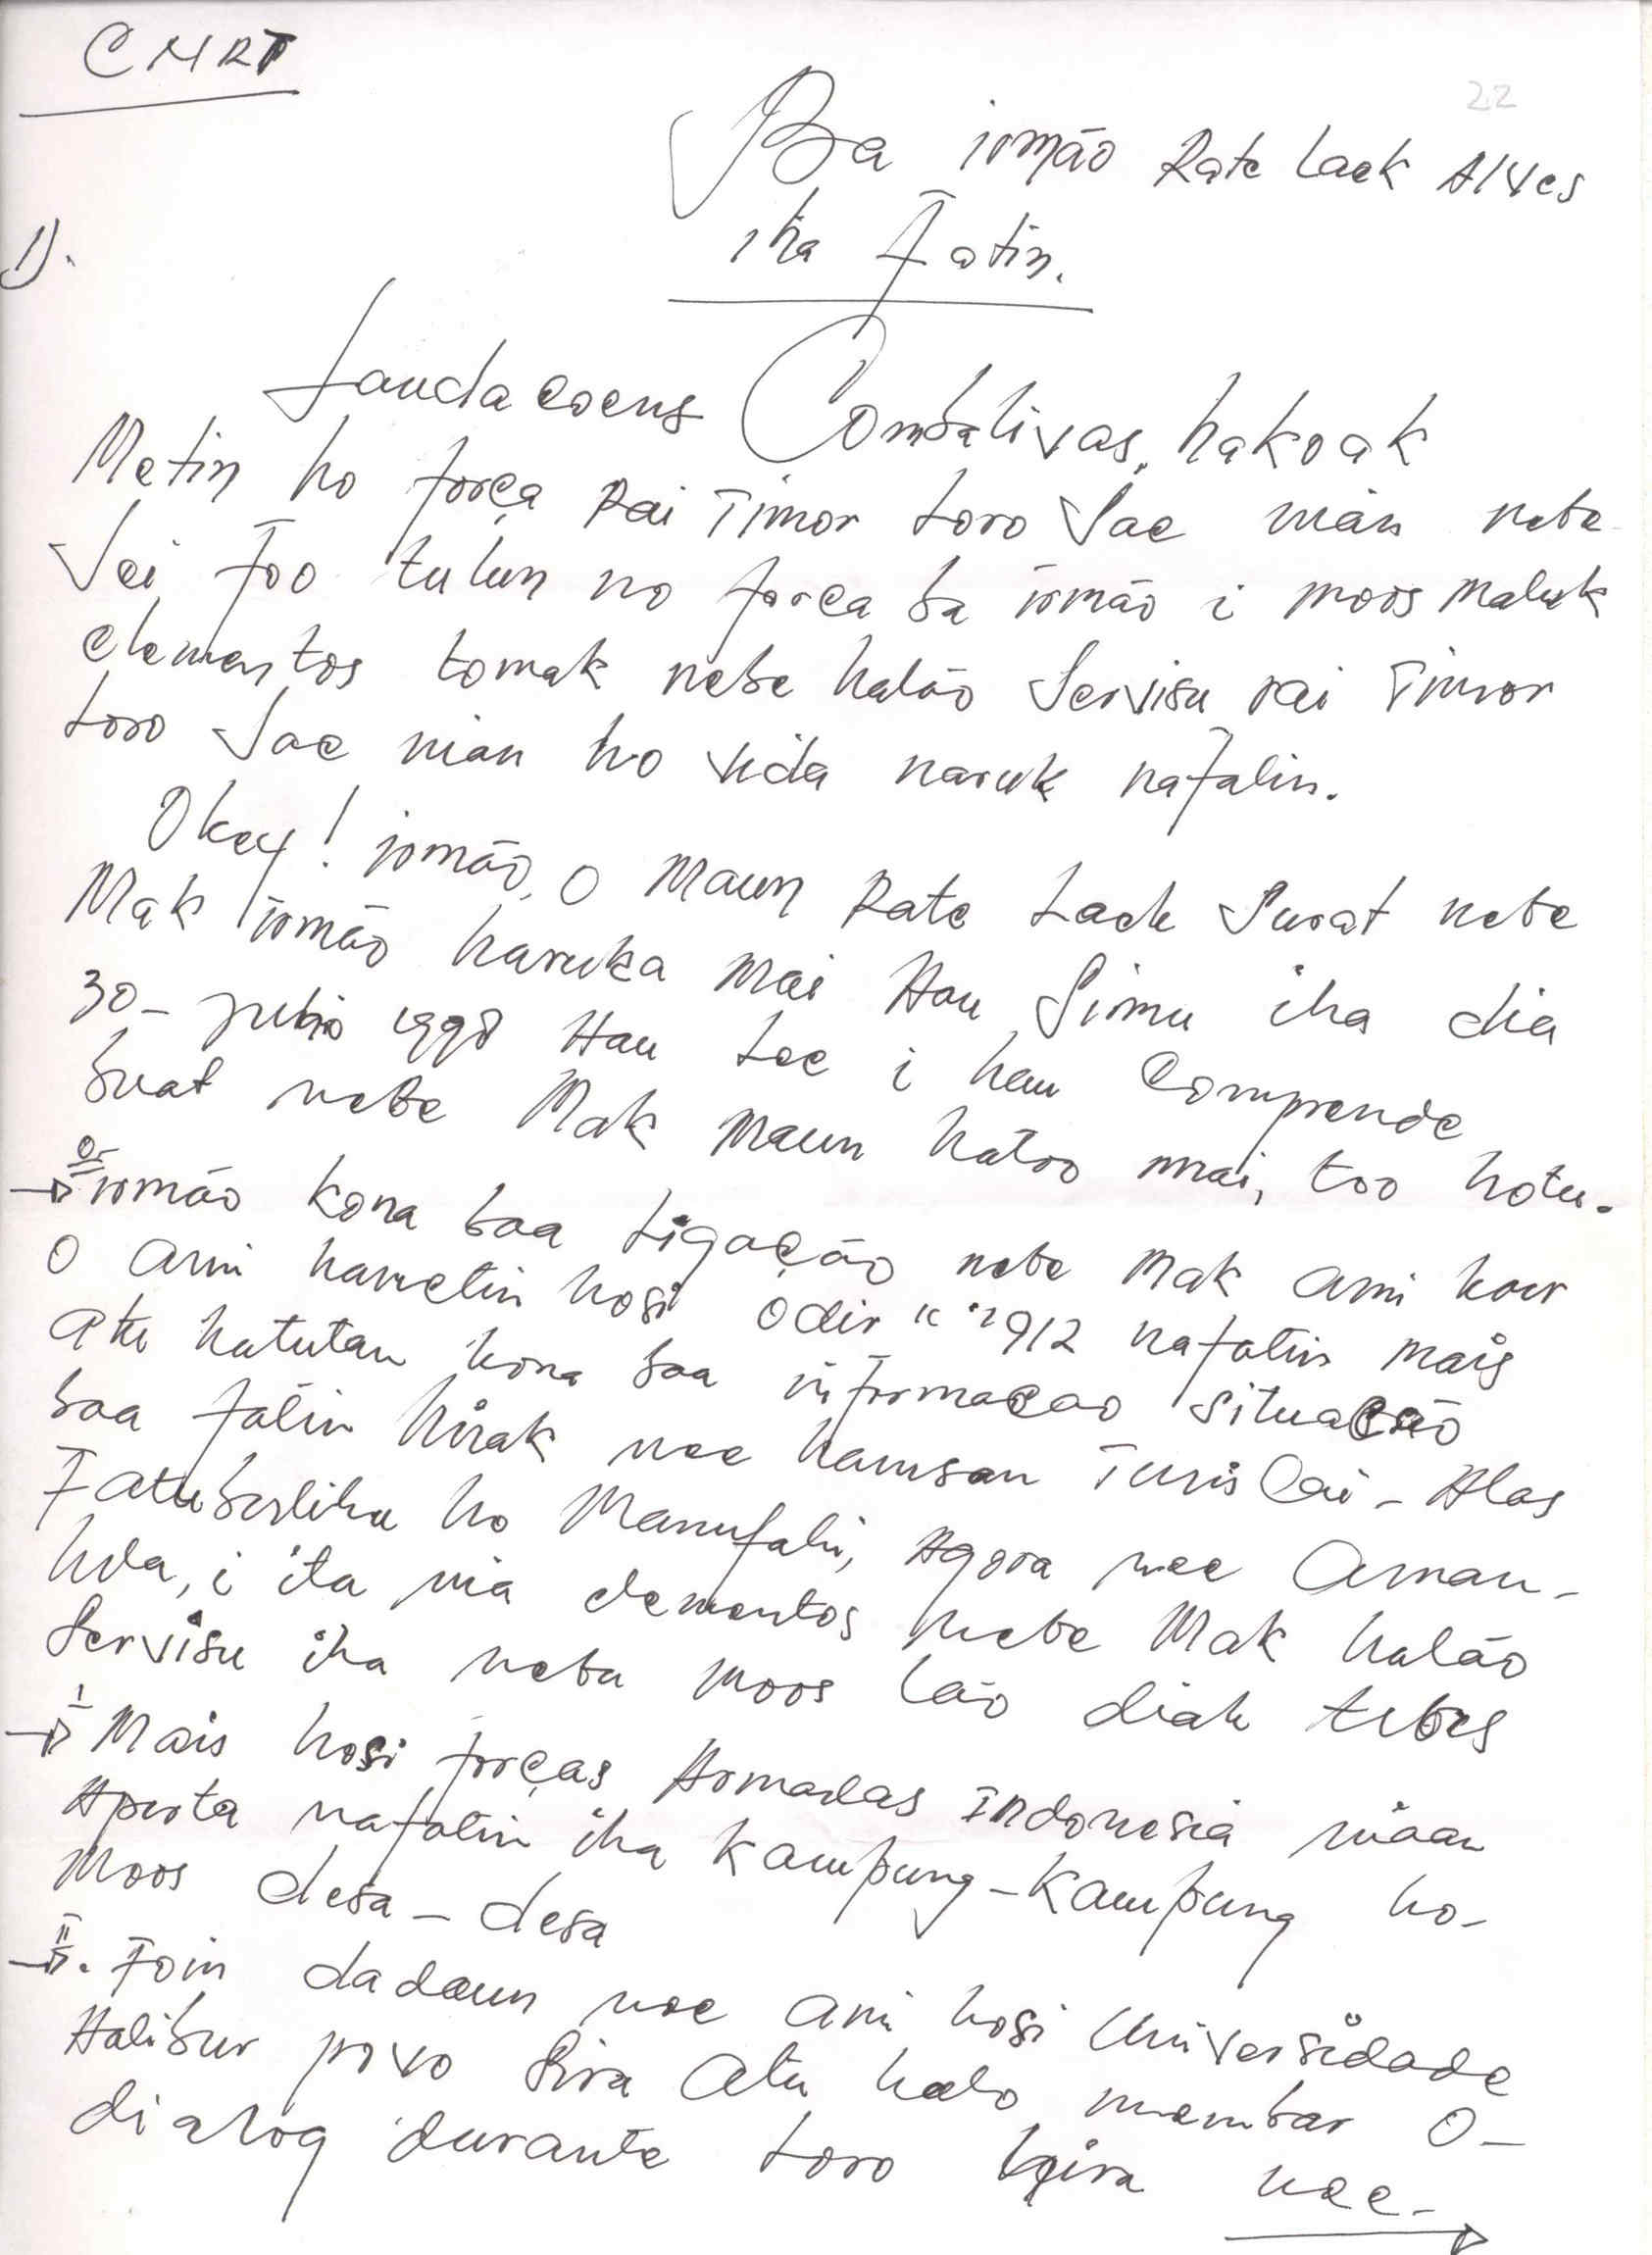 CNRT
22
Ba irmão Rate Laek Alves
iha Fatin.
1).
Saudacoens Combativas, hakoak
Metin ho força Rai Timor Loro Sae nian nebe
Sei foo tulun no forca ba irmão i moos Maluk
elementos tomak nebe halão Servisu rai Timor
Loro Sae nian ho vida naruk nafatin.
Okey! irmão, o Maun Rate Laek Surat nebe
Mak irmão haruka Mai Hau Simu iha dia
30-julho 1998 Hau Lee i hau Comprende
buat nebe Mak Maun hatoo mai, too hotu.
irmão kona baa Ligação nebe Mak ami
O ami hametin hosi Odir "" 912 nafatin mais
atu hatutan kona baa informacao situacão
baa fatin hirak nee hamsan Turiscai - Alas
Fatuberlihu ho Manufahi, Agora nee Aman-
hela, i ita nia elementos nebe Mak halão
Servisu iha neba moos lão diak tebes
I Mais hosi forças Armadas Indonesia niaan
Aperta nafatin iha Kampung-Kampung ho-
Moos desa-desa
II. Foin dadaun nee ami hosi Universidade
Halibur povo Sira Atu halo membar O-
dialog durante Loro hira nee-